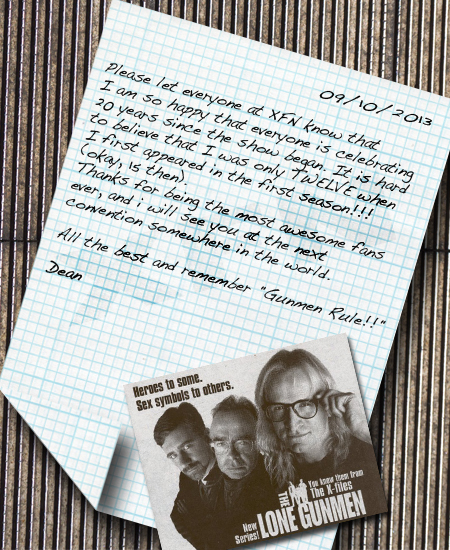 09/10/2013
Please let everyone at XFN know that
I am so happy that everyone is celebrating
20 years since the show began. It is hard
to believe that I was only TWELVE when
I first appeared in the first season!!!
(okay, 15 then).
Thanks for being the most awesome fans
ever, and i will see you at the next
convention somewhere in the world.
All the best and remember "Gunmen Rule!!"
Dean
Heroes to some.
Sex symbols to others.
You know them from
The X-files
New
Series!
THE
LONE GUNMEN